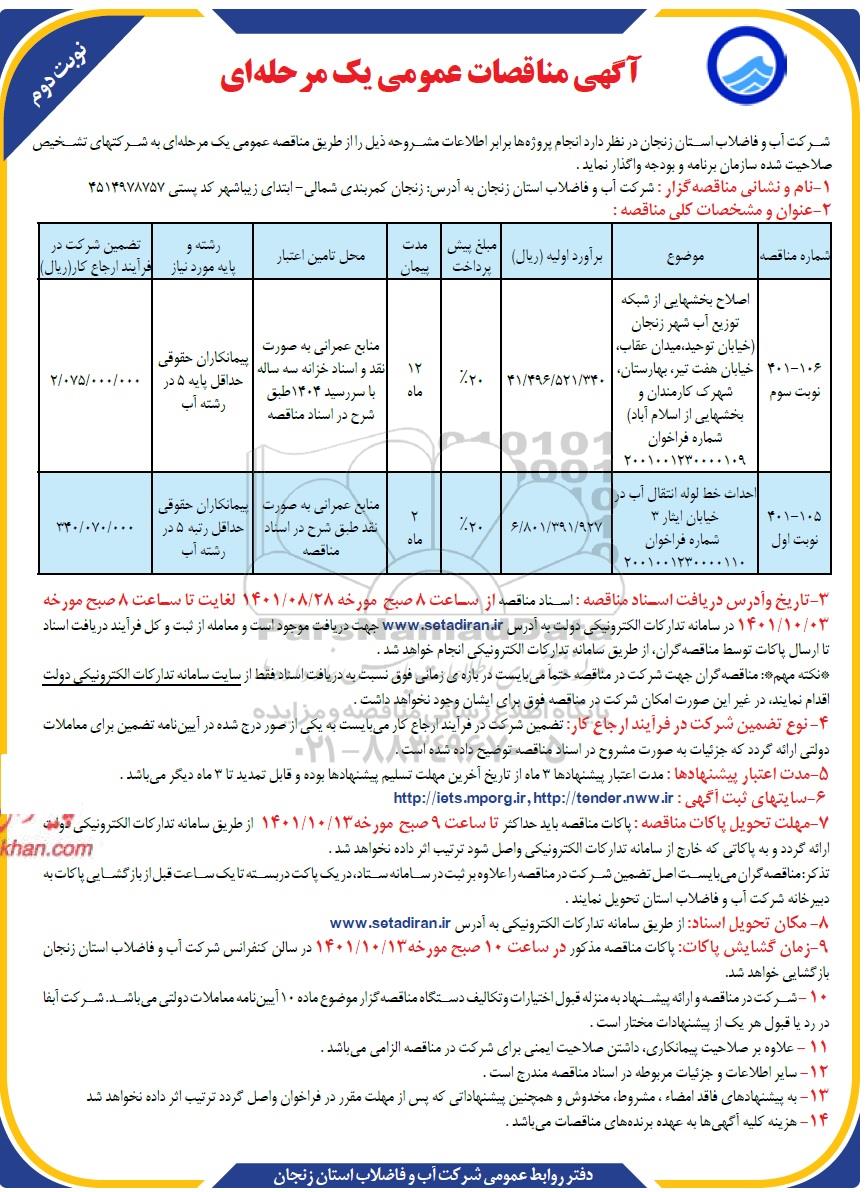 نوبت دوم
آگهی مناقصات عمومی یک مرحله‌ای
شرکت آب و فاضلاب استان زنجان در نظر دارد انجام پروژه‌ها برابر اطلاعات مشروحه ذیل را از طریق مناقصه عمومی یک مرحله‌ای به شرکتهای تشخیص
صلاحیت شده سازمان برنامه و بودجه واگذار نماید .
۱-نام و نشانی مناقصه‌گزار : شرکت آب و فاضلاب استان زنجان به آدرس: زنجان کمربندی شمالی- ابتدای زیباشهر کد پستی ۴۵۱۴۹۷۸۷۵۷
۲-عنوان و مشخصات کلی مناقصه :
شماره مناقصه
موضوع
برآورد اولیه (ریال)
مبلغ پیش
پرداخت
مدت
پیمان
محل تامین اعتبار
رشته و
پایه مورد نیاز
تضمین شرکت در
فرآیند ارجاع کار(ریال)
۴۰۱-۱۰۶
نوبت سوم
اصلاح بخشهایی از شبکه
توزیع آب شهر زنجان
(خیابان توحید،میدان عقاب،
خیابان هفت تیر، بهارستان،
شهرک کارمندان و
بخشهایی از اسلام آباد)
شماره فراخوان
۲۰۰۱۰۰۱۲۳۰۰۰۰۱۰۹
۴۱/۴۹۶/۵۲۱/۳۴۰
۲۰٪
۱۲
ماه
منابع عمرانی به صورت
نقد و اسناد خزانه سه ساله
با سررسید ۱۴۰۴طبق
شرح در اسناد مناقصه
پیمانکاران حقوقی
حداقل پایه ۵ در
رشته آب
۲/۰۷۵/۰۰۰/۰۰۰
۴۰۱-۱۰۵
نوبت اول
احداث خط لوله انتقال آب در
خیابان ایثار ۳
شماره فراخوان
۲۰۰۱۰۰۱۲۳۰۰۰۰۱۱۰
۶/۸۰۱/۳۹۱/۹۲۷
۲۰٪
۲
ماه
منابع عمرانی به صورت
نقد طبق شرح در اسناد
مناقصه
پیمانکاران حقوقی
حداقل رتبه ۵ در
رشته آب
۳۴۰/۰۷۰/۰۰۰
۳-تاریخ وآدرس دریافت اسناد مناقصه : اسناد مناقصه از ساعت ۸ صبح مورخه ۱۴۰۱/۰۸/۲۸ لغایت تا ساعت ۸ صبح مورخه
۱۴۰۱/۱۰/۰۳ در سامانه تدارکات الکترونیکی دولت به آدرس www.setadiran.ir جهت دریافت موجود است و معامله از ثبت و کل فرآیند دریافت اسناد
تا ارسال پاکات توسط مناقصه‌گران، از طریق سامانه تدارکات الکترونیکی انجام خواهد شد .
*نکته مهم*: مناقصه‌گران جهت شرکت در مناقصه حتماً می‌بایست در بازه ی زمانی فوق نسبت به دریافت اسناد فقط از سایت سامانه تدارکات الکترونیکی دولت
اقدام نمایند، در غیر این صورت امکان شرکت در مناقصه فوق برای ایشان وجود نخواهد داشت .
۴- نوع تضمین شرکت در فرآیند ارجاع کار: تضمین شرکت در فرآیند ارجاع کار می‌بایست به یکی از صور درج شده در آیین‌نامه تضمین برای معاملات
دولتی ارائه گردد که جزئیات به صورت مشروح در اسناد مناقصه توضیح داده شده است .
۵-مدت اعتبار پیشنهادها : مدت اعتبار پیشنهادها ۳ ماه از تاریخ آخرین مهلت تسلیم پیشنهادها بوده و قابل تمدید تا ۳ ماه دیگر می‌باشد .
۶-سایتهای ثبت آگهی : http://iets.mporg.ir, http://tender.nww.ir
۷-مهلت تحویل پاکات مناقصه : پاکات مناقصه باید حداکثر تا ساعت ۹ صبح مورخه۱۴۰۱/۱۰/۱۳ از طریق سامانه تدارکات الکترونیکی دولت
ارائه گردد و به پاکاتی که خارج از سامانه تدارکات الکترونیکی واصل شود ترتیب اثر داده نخواهد شد .
تذکر:مناقصه گران می‌بایست اصل تضمین شرکت در مناقصه را علاوه بر ثبت در سامانه ستاد، در یک پاکت دربسته تا یک ساعت قبل از بازگشایی پاکات به
دبیرخانه شرکت آب و فاضلاب استان تحویل نمایند .
۸- مکان تحویل اسناد: از طریق سامانه تدارکات الکترونیکی به آدرس www.setadiran.ir
۹-زمان گشایش پاکات: پاکات مناقصه مذکور در ساعت ۱۰ صبح مورخه۱۴۰۱/۱۰/۱۳ در سالن کنفرانس شرکت آب و فاضلاب استان زنجان
بازگشایی خواهد شد.
۱۰ - شرکت در مناقصه و ارائه پیشنهاد به منزله قبول اختیارات وتکالیف دستگاه مناقصه‌گزار موضوع ماده ۱۰ آیین‌نامه معاملات دولتی می‌باشد. شرکت آبفا
در رد یا قبول هر یک از پیشنهادات مختار است .
۱۱ - علاوه بر صلاحیت پیمانکاری، داشتن صلاحیت ایمنی برای شرکت در مناقصه الزامی می‌باشد .
۱۲- سایر اطلاعات و جزئیات مربوطه در اسناد مناقصه مندرج است .
۱۳- به پیشنهادهای فاقد امضاء ، مشروط، مخدوش و همچنین پیشنهاداتی که پس از مهلت مقرر در فراخوان واصل گردد ترتیب اثر داده نخواهد شد
۱۴- هزینه کلیه آگهی‌ها به عهده برنده‌های مناقصات می‌باشد .
دفتر روابط عمومی شرکت آب و فاضلاب استان زنجان
ParsNamadData
پایگاه اطلاع رسانی مناقصه و مزایده
۰۲۱-۸۸۳۴۹۶۷۰-۵
khan.com